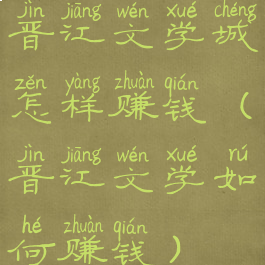 jìn jiāng wén xué chéng
晋江文学城
zěn yàng zhuàn qián
怎样赚钱（
jìn jiāng wén xué rú
晋江文学如
hé zhuàn qián
何赚钱）